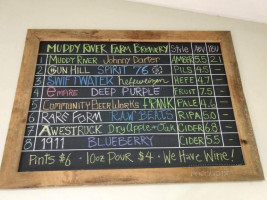 MUDDY RIVER FARM BREWERY STYLE ABV IBU
1 MUDDY RIVER Johnny Darter AMBER 5.5 21
2 GUN HILL SPIRIT 76 PILS 4.5 -
3 SWIFTWATER hefeweizen HEFE 4.7 -
4 EMPIRE DEEP PURPLE FRUIT 7.5 -
5 COMMUNITY BEER WORKS PALE 4.6 -
6 RARE FORM RIPA 5.0 -
7 AWESTRUCK Dry Apple + Oak CIDER 6.8 -
8 1911 BLUEBERRY CIDER 5.5 -
PINTS $6 - 10oz POUR $4 - WE HAVE WINE!